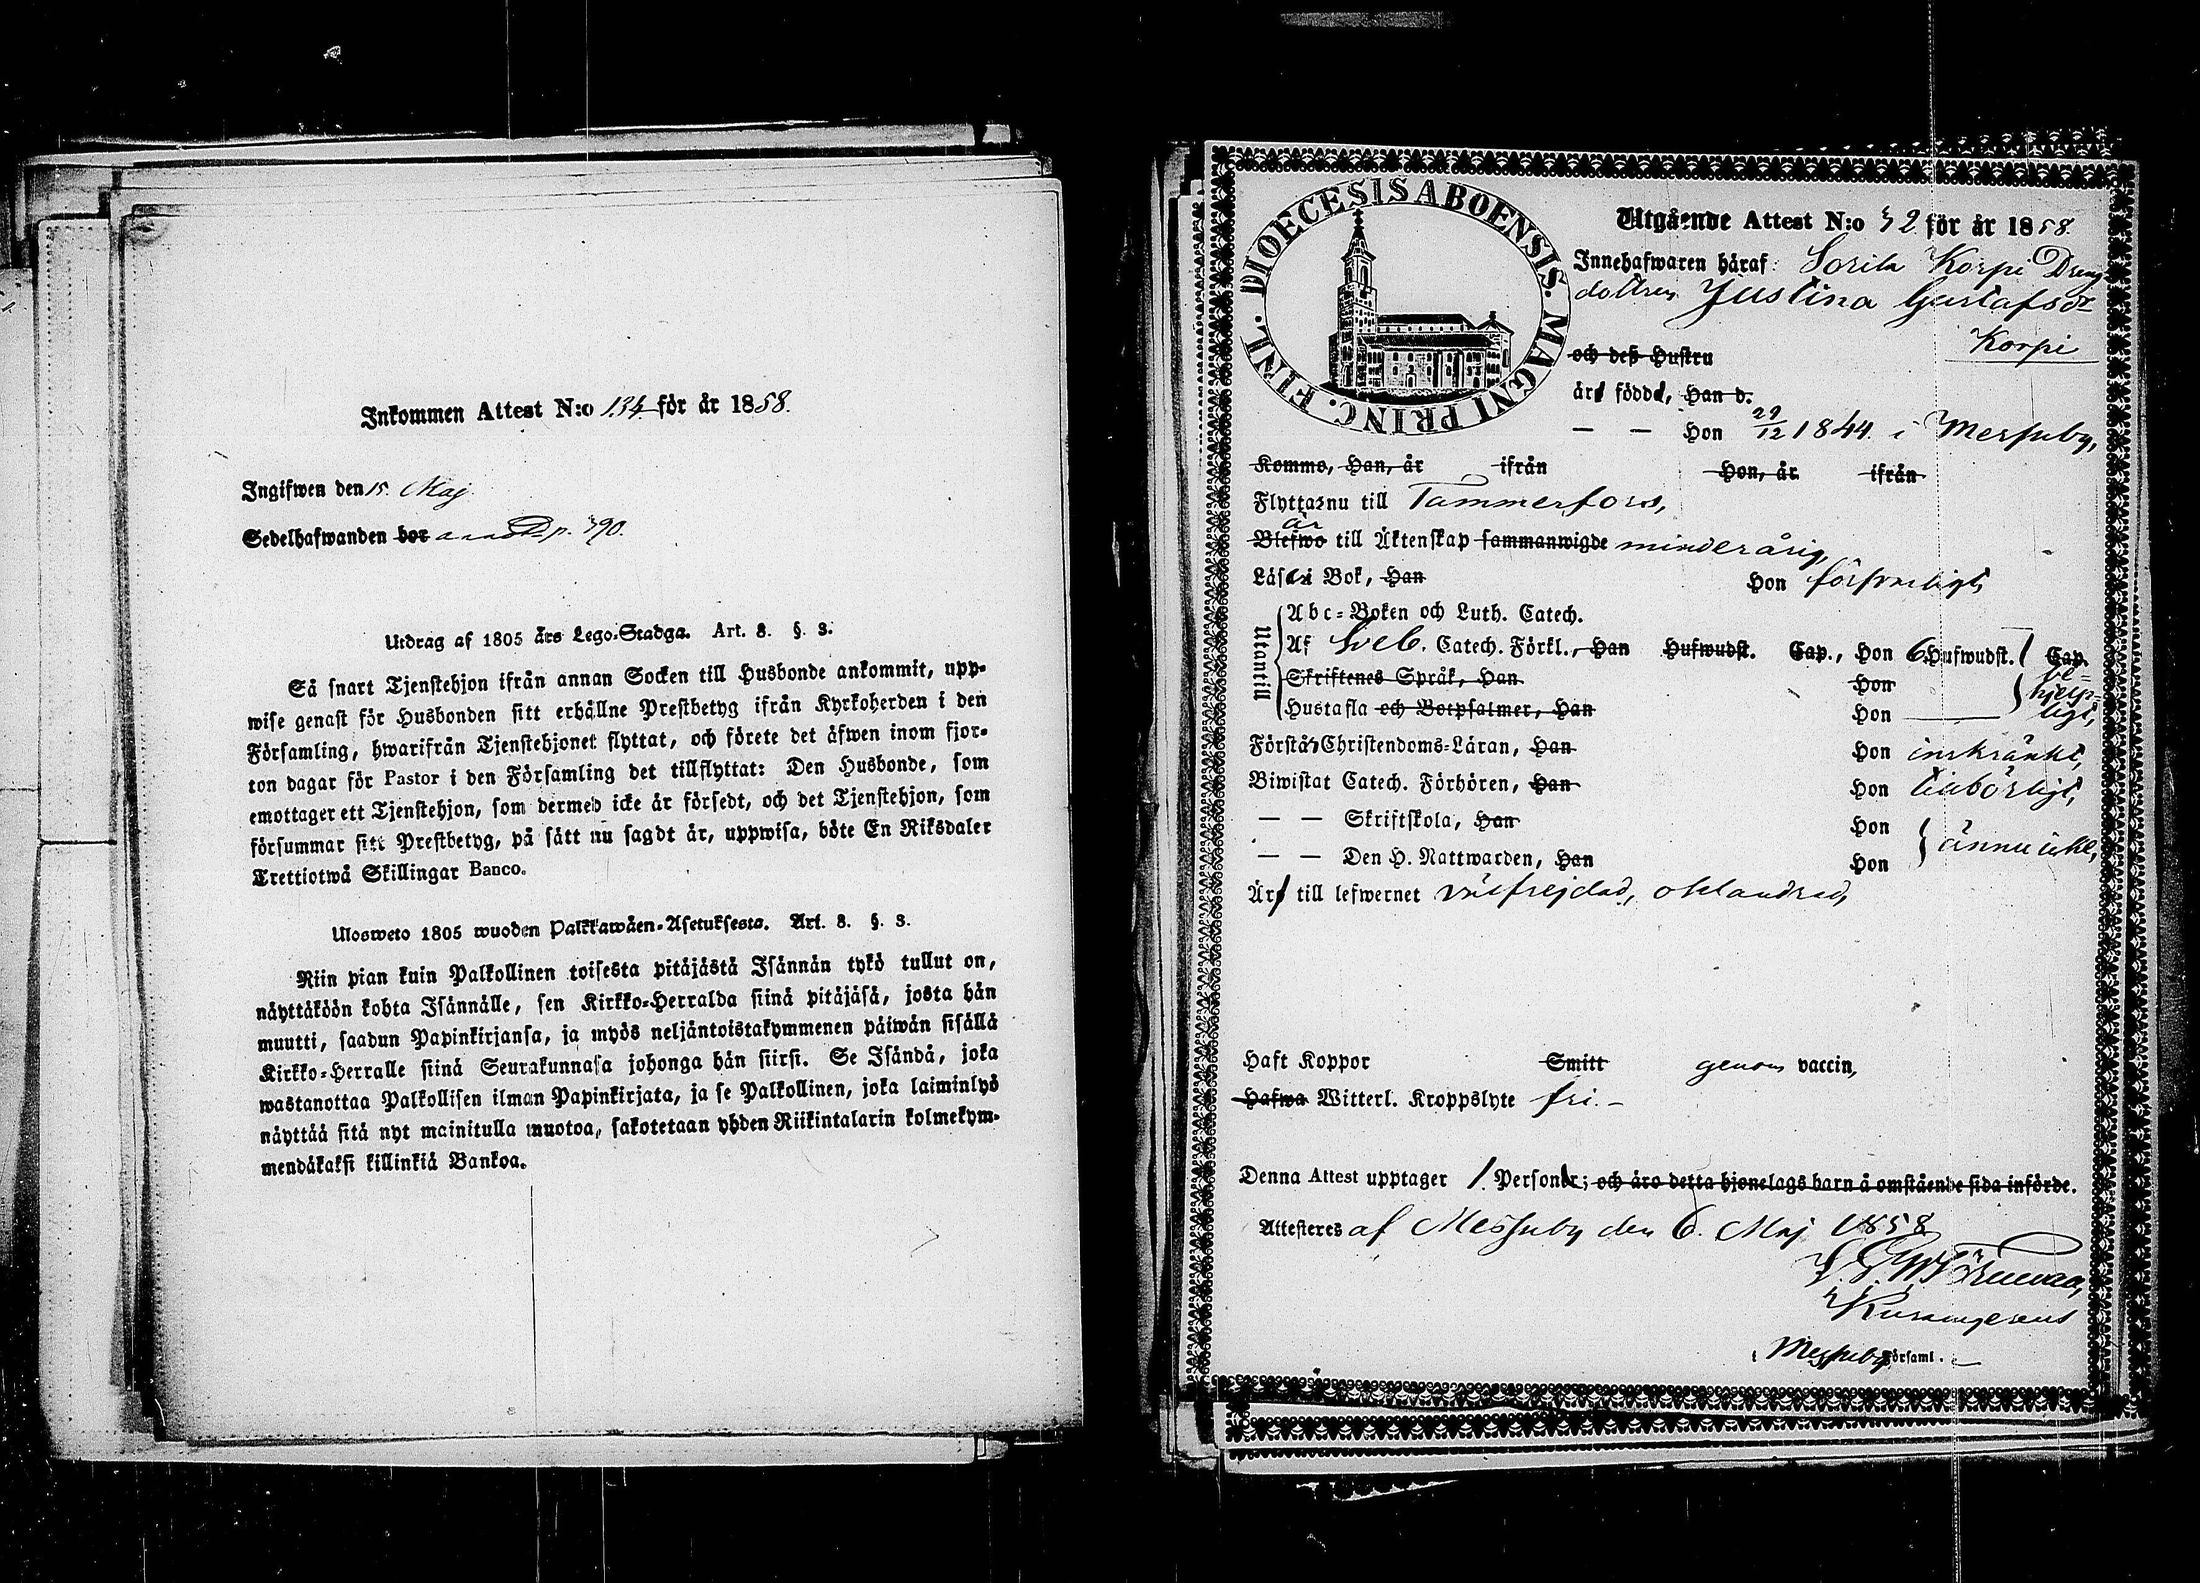 Inkommen Attest N:o 134 för år 1858.
Ingifwen den 15. Maj
Sedelhafwanden bor p. 390.
Utdrag af 1805 års Lego-Stadga. Art. 8. §. 3.
Så snart Tjenstehjon ifrån annan Socken till Husbonde ankommit, upp-
wise genast för Husbonden sitt erhållne Prestbetyg ifrån Kyrkoherden i den
Församling, hwarifrån Tjenstehjonet flyttat, och förete det äfwen inom fjor-
ton dagar för Pastor i den Församling det tillflyttat: Den Husbonde, som
emottager ett Tjenstehjon, som dermed icke är försedt, och det Tjenstehjon, som
försummar sitt Prestbetyg, på sätt nu sagdt är, uppwisa, böte En Riksdaler
Trettiotwå Skillingar Banco.
Ulosweto 1805 wuoden Palkkawäen-Asetuksesta. Art. 8. §. 3.
Niin pian kuin Palkollinen toisesta pitäjästä Isännän tykö tullut on,
näyttäköön kohta Isännälle, sen Kirkko-Herralda siinä pitäjäsä, josta hän
muutti, saadun Papinkirjansa, ja myös neljäntoistakymmenen päiwän sisällä
Kirkko-Herralle siinä Seurakunnasa johonga hän siirsi. Se Isändä, joka
wastanottaa Palkollisen ilman Papinkirjata, ja se Palkollinen, joka laiminlyö
näyttää sitä nyt mainitulla muotoa, sakotetaan yhden Riikintalarin kolmekym-
mendäkaksi killinkiä Bankoa.
DIOECESIS ABOENSIS. MAGNI PRINC. FINL.
Utgående Attest N:o 32 för år 1858.
Innehafwaren häraf: Sorila Korpi Dreng
dottren Justina Gustafsdr
Korpi
och deß Hustru
äro födde, Han d.
— — Hon 29/12 1844. i Messuby,
Kommo, Han, år ifrån Hon, år ifrån
Flyttar nu till Tammerfors,
är
Blefwo till Äktenskap sammanwigde minderårig,
Läser i Bok, Han Hon försvarligt,
Utantill
Abc-Boken och Luth. Catech.
Af Sveb. Catech. Förkl., Han Hufwudst. Cap., Hon 6 Hufwudst. Cap.
Skriftenes Språk, Han Hon be-
hjelp-
Hustafla och Botpsalmer, Han Hon ligt,
Förstår Christendoms-Läran, Han Hon inskränkt,
Biwistat Catech. Förhören, Han Hon tillbörligt,
— — Skriftskola, Han Hon
— — Den H. Nattwarden, Han Hon ännu icke,
Är till lefwernet välfrejdad, oklandrad,
Haft Koppor Smitt genom vaccin,
Hafwa Witterl. Kroppslyte fri. —
Denna Attest upptager 1. Personer; och äro detta hjonelags barn å omstående sida införde.
Attesteres af Messuby den 6. Maj 1858
i Messuby Församl.